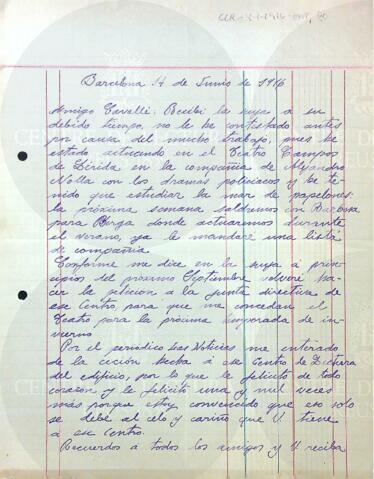 Barcelona 14 de Junio de 1916
Amigo Cavallé: Recibí la suya a su
debido tiempo no le he contestado antes
por causa del mucho trabajo, pues he
estado actuando en el Teatro Campos
de Lérida en la compañia de Alejandro
Nolla con los dramas policiacos y he te-
nido que estudiar la mar de papelones:
la próxima semana saldremos con
para Berga donde actuaremos durante
el verano, ya le mandaré una lista
de compañia.
Conforme me dice en la suya á prin-
cipios del próximo Septiembre volveré ha-
cer la peticion a la junta directiva de
ese Centro, para que me concedan el
Teatro para la próxima temporada de in-
vierno.
Por el periodico Las Noticias me enterado
de la cición hecha á ese Centro de Lectura
del edificio, por lo que le felicito de todo
corazón y le felicito una y mil veces
más porque estoy convencido que eso solo
se debe al celo y cariño que V. tiene
á ese Centro.
Recuerdos a todos los amigos y V reciba